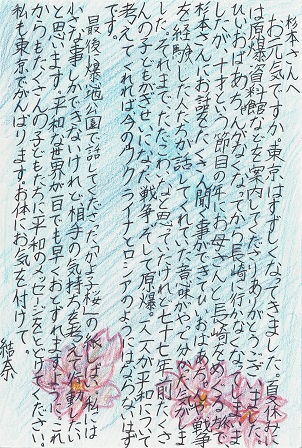 杉本さんへ
お元気ですか。東京はすずしくなってきました。夏休みに
は原爆資料館などを案内してくださりありがとうございました。
ひいおばあちゃんがなくなってから長崎に行かなくなってしま
したが、十才という節目の年にお母さんと長崎をめぐる旅で
杉本さんにお話をたくさん聞く事ができてひいおばあちゃんや戦争
を経験した人たちが話してくれていた意味がやっと分かった気がしま
した。それまで、ただこわいなと思っていたけれど七十七年前たくさ
んの子どもがぎせいになった戦争、そして原爆。一人一人が平和について
考えてくれれば今のウクライナとロシアのようにはならないはず
です。
最後、爆心地公園で話してくださった「かよ子桜」のはなし。私には
小さな事しかできないけれど相手の気持ちを考えて行動したい
と思います。平和な世界が一日でも早くおとずれますように。これ
からもたくさんの子どもたちに平和のメッセージをとどけてください。
私も東京でがんばります。お体にお気を付けて。
結奈